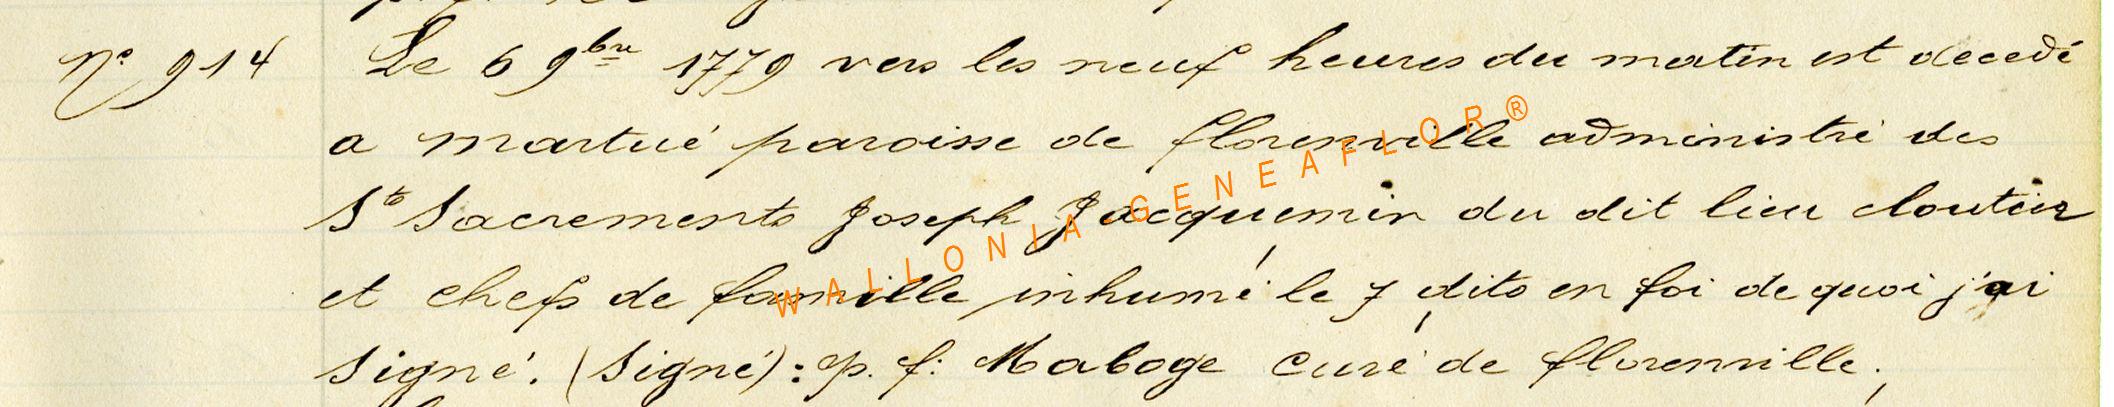 N° 914 Le 6 9bre 1779 vers les neuf heures du matin est decedé
a martué paroisse de florenville administré des
Sts Sacrements Joseph Jacquemin du dit lieu cloutier
et chefs de famille inhumé le 7 dito en foi de quoi j'ai
signé. (Signé): p. f: Maboge curé de florenville.
WALLONIA-GENEAFLOR®